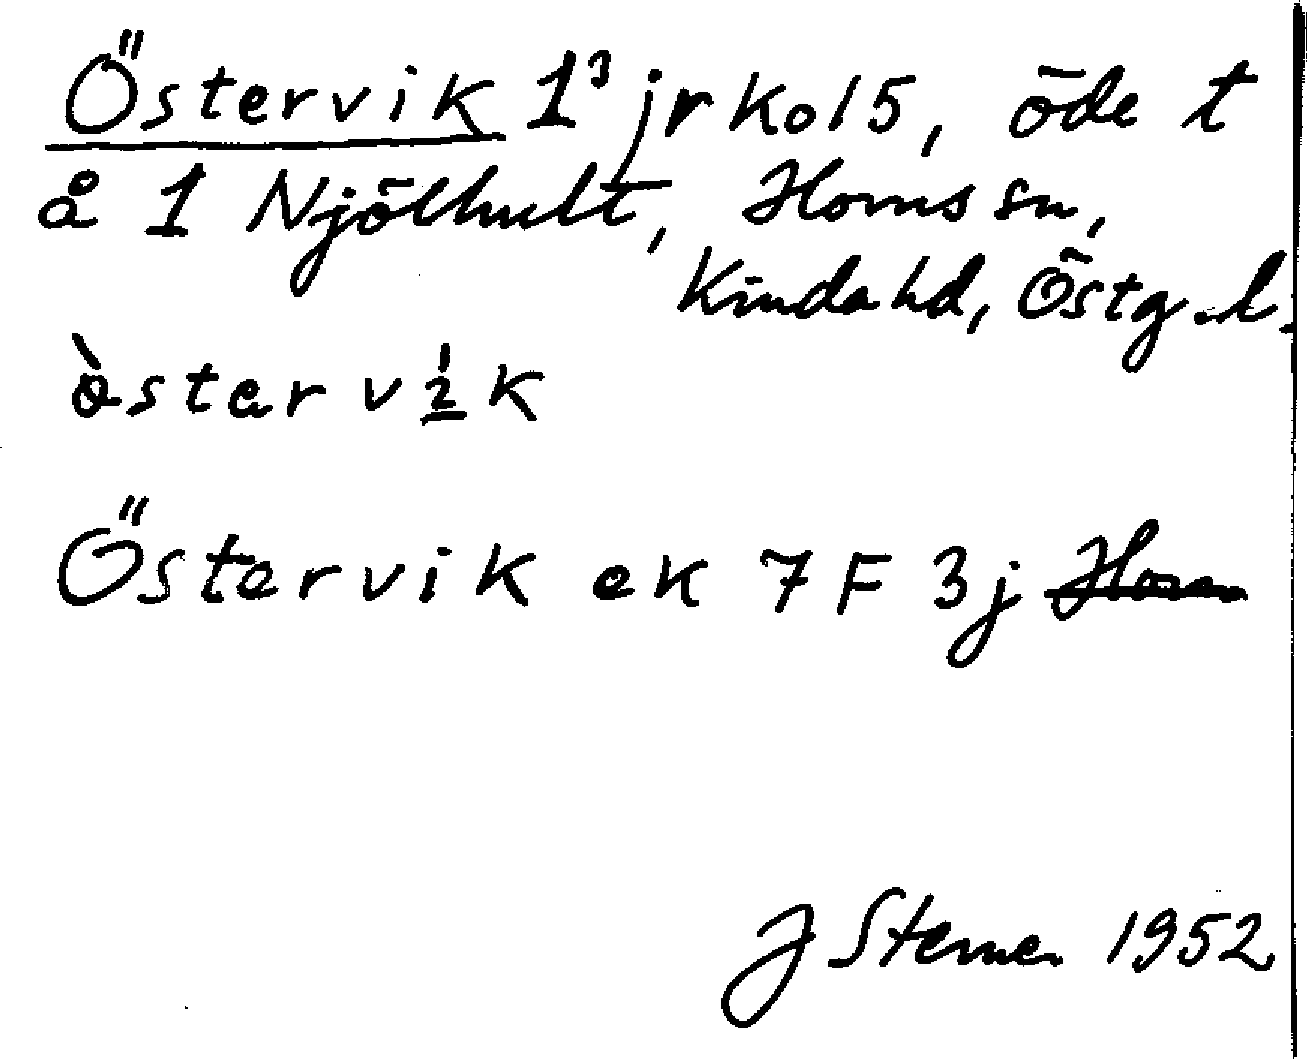 Östervik 1³ jr Ko15, öde t
å 1 Njölhult, Horns sn,
Kinda hd, Östg.l.
òstar v½k
Östervik ek 7F 3j Horn
J Sterner 1952